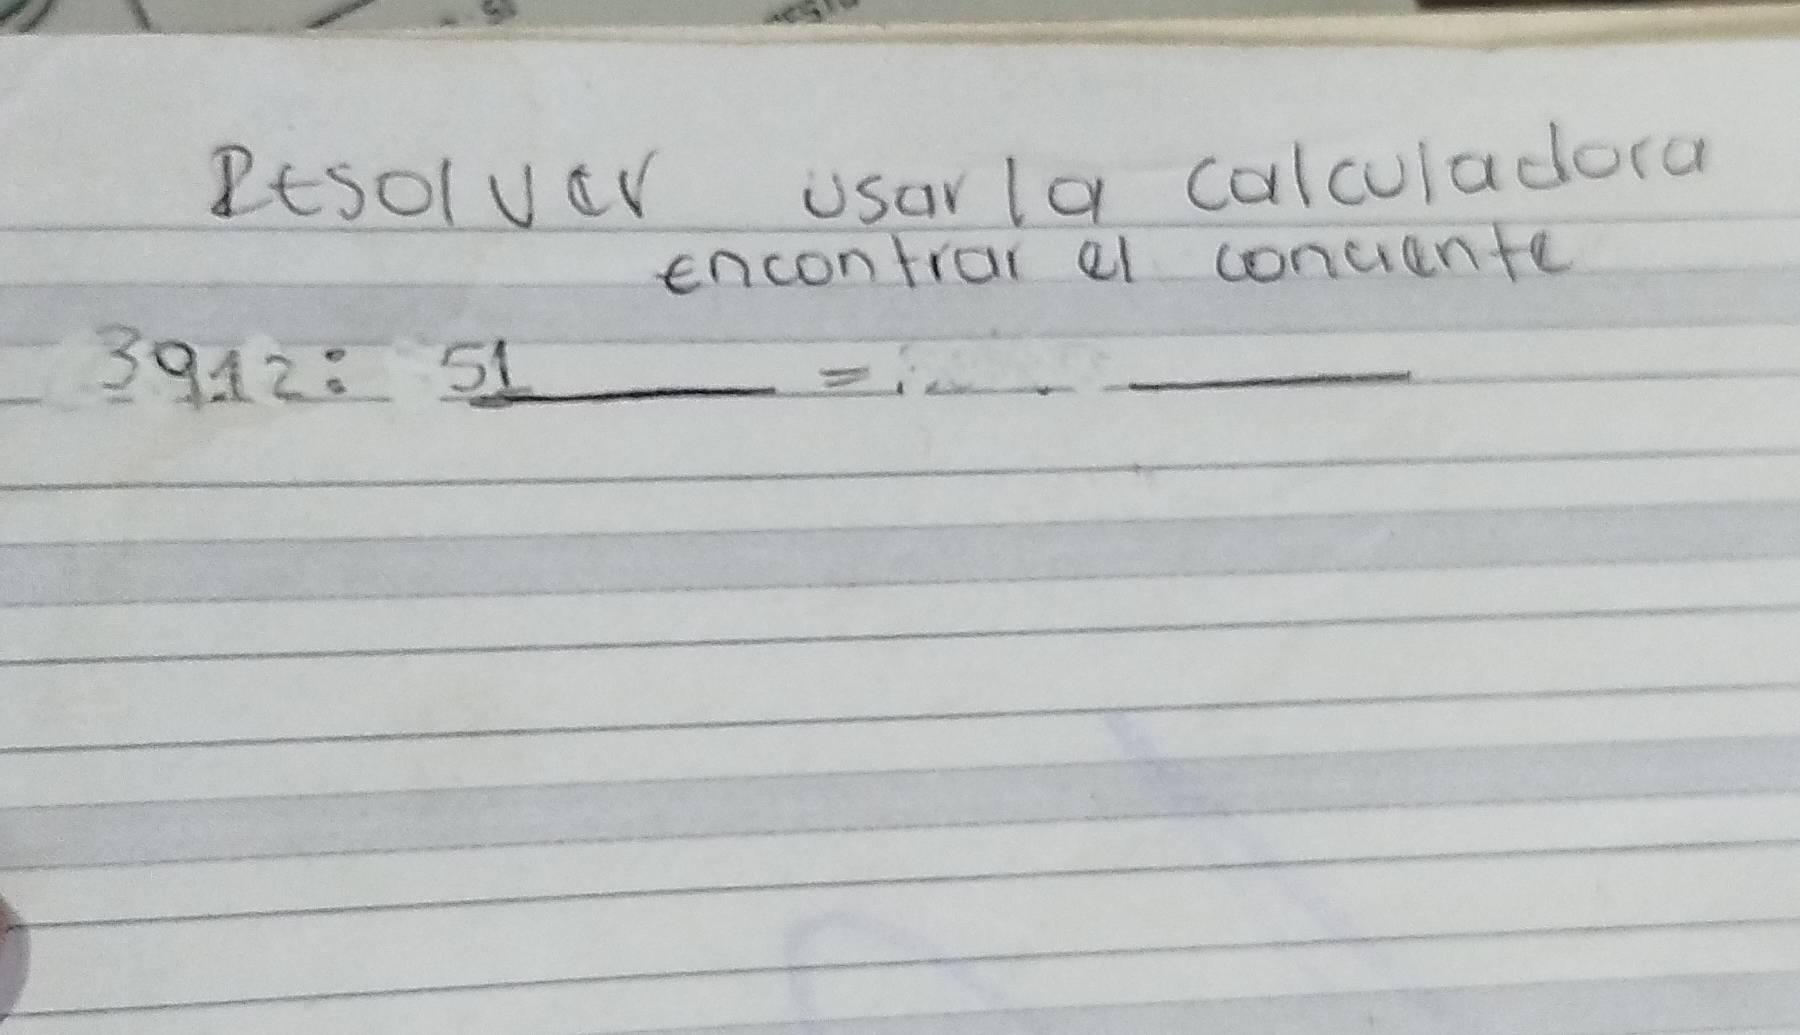 Resolver usar la calculadora
encontrar el conciente
3912: 51 =